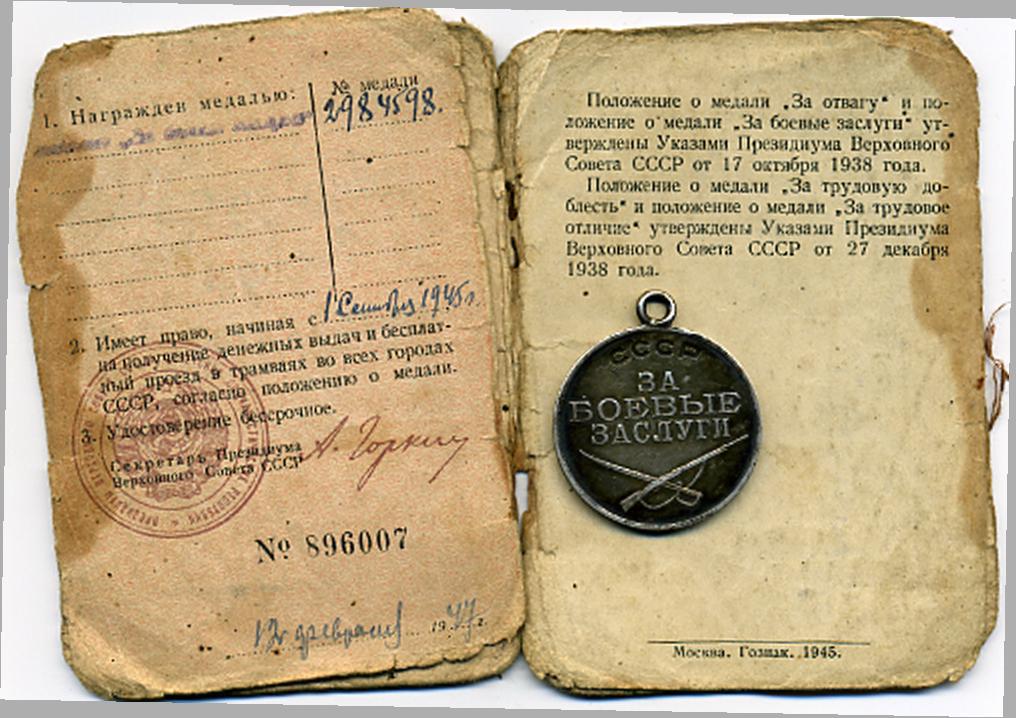 1. Награжден медалью:
№ медали
2984598.
2. Имеет право, начиная с 1 Сентября 1945 г.
на получение денежных выдач и бесплат-
ный проезд в трамваях во всех городах
СССР, согласно положению о медали.
3. Удостоверение бессрочное.
Секретарь Президиума
Верховного Совета СССР
А. Горкин
№ 896007
12 февраля 1947 г.
Положение о медали „За отвагу“ и по-
ложение о медали „За боевые заслуги“ ут-
верждены Указами Президиума Верховного
Совета СССР от 17 октября 1938 года.
Положение о медали „За трудовую до-
блесть“ и положение о медали „За трудовое
отличие“ утверждены Указами Президиума
Верховного Совета СССР от 27 декабря
1938 года.
СССР
ЗА
БОЕВЫЕ
ЗАСЛУГИ
Москва. Гознак. 1945.